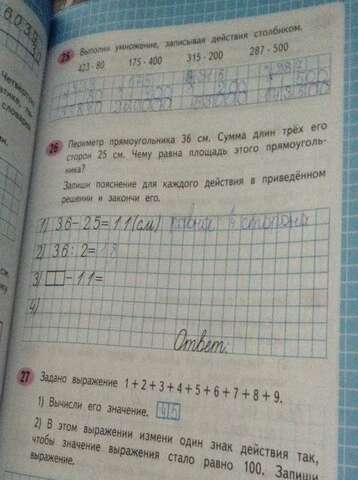 25 Выполни умножение, записывая действия столбиком.
423 · 80 175 · 400 315 · 200 287 · 500
26 Периметр прямоугольника 36 см. Сумма длин трёх его
сторон 25 см. Чему равна площадь этого прямоуголь-
ника?
Запиши пояснение для каждого действия в приведённом
решении и закончи его.
1) 36-25=11(см)
2) 36:2=18
3) □□-11=
4)
Ответ:
27 Задано выражение 1+2+3+4+5+6+7+8+9.
1) Вычисли его значение. 45
2) В этом выражении измени один знак действия так,
чтобы значение выражения стало равно 100. Запиши
выражение.